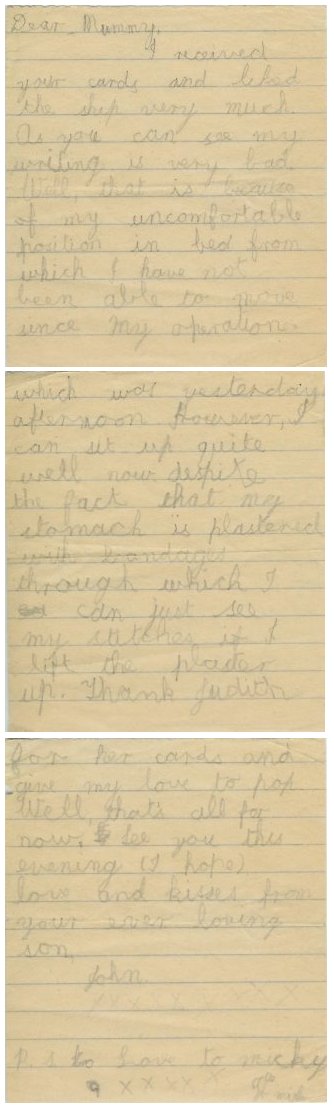 Dear Mummy,
I received
your cards and liked
the ship very much.
As you can see my
writing is very bad.
Well, that is because
of my uncomfortable
position in bed from
which I have not
been able to move
since my operation.
which was yesterday
afternoon. However, I
can sit up quite
well now despite
the fact that my
stomach is plastered
with bandages
through which I
can just see
my stitches if I
lift the plaster
up. Thank Judith
for her cards and
give my love to pop.
Well, that's all for
now. See you this
evening (I hope).
love and kisses from
your ever loving
son,
John.
X X X X X X X X
P.S. Love to micky
X X X X X